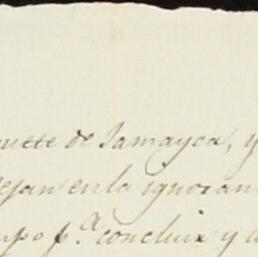 quete de Jamayca, y
dejan en la ignoran
mpo p.ª concluir y